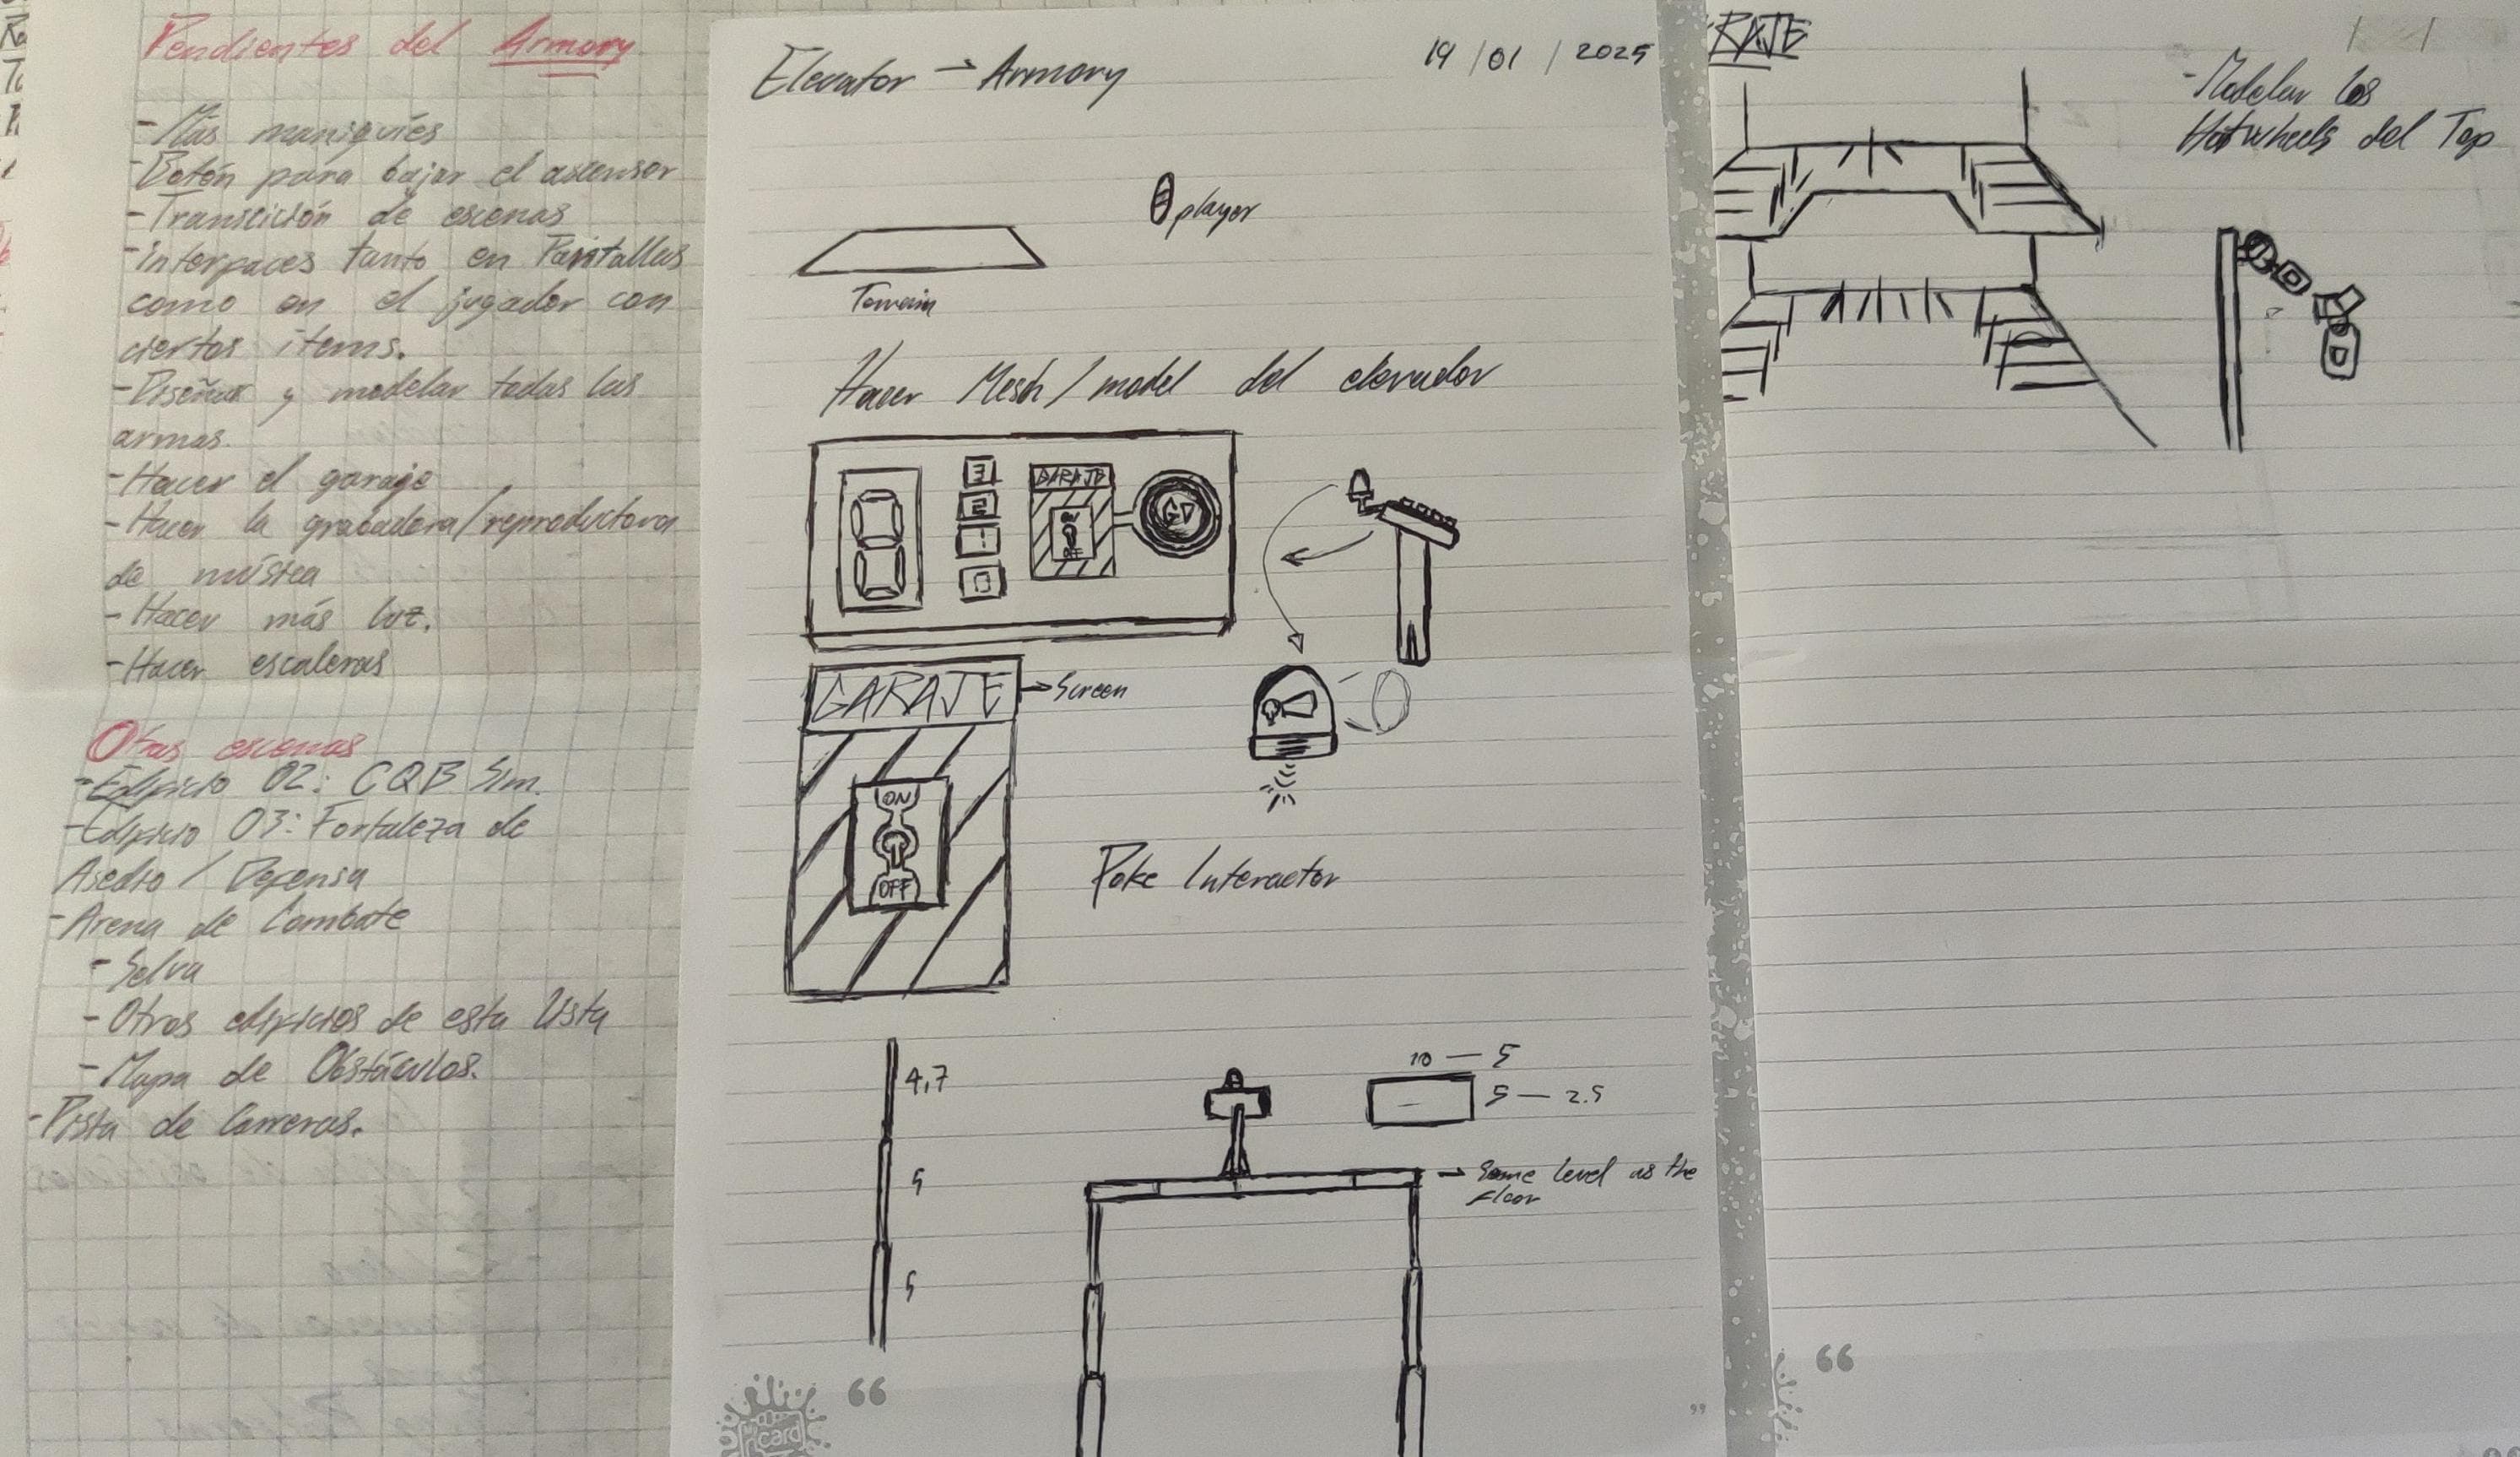 Pendientes del Armory
- Más maniquíes
- Botón para bajar el ascensor
- Transición de escenas
- interfaces tanto en Pantallas
como en el jugador con
ciertos items.
- Diseñar y modelar todas las
armas.
- Hacer el garaje
- Hacer la grabadora/reproductora
de música
- Hacer más luz.
- Hacer escaleras
Otras escenas
- Edificio 02: CQB Sim.
- Edificio 03: Fortaleza de
Asedio / Defensa
- Arena de Combate
- Selva
- Otros edificios de esta lista
- Mapa de Obstáculos.
- Pista de Carreras.
Elevator → Armory
19 / 01 / 2025
player
Terrain
Hacer Mesh / model del elevador
3
2
1
0
GARAJE
ON
OFF
GD
GARAJE
→ Screen
ON
OFF
Poke Interactor
4,7
5
5
10 — 5
5 — 2.5
→ Same level as the
floor
card
RAJE
- Modelar los
Hotwheels del Top